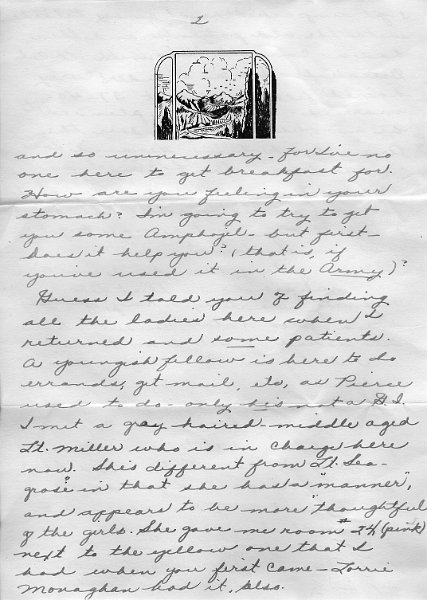 2
and so uninnecessary - for I've no
one here to get breakfast for.
How are you feeling in your
stomach? I'm going to try to get
you some Amphojel - but first -
does it help you? (that is, if
you've used it in the Army)?
Guess I told you of finding
all the ladies here when I
returned and some patients.
A youngish fellow is here to do
errands, get mail, etc, as Pierce
used to do - only he's not a G.I.
I met a gray haired - middle aged
Lt. Miller who is in charge here
now. She's different from "Lt. Sea-
grose" in that she has "a manner",
and appears to be more "thoughtful
of the girls. She gave me room # 24 (pink)
next to the yellow one that I
had when you first came - Lorrie
Monaghan had it, also.